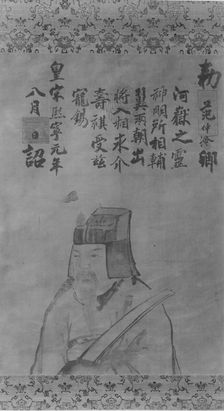 勅 范仲淹 卿
河嶽之靈
神明所相輔
翼兩朝出
將入相永介
壽祺受茲
寵錫
皇宋熙寧元年
八月 日 詔